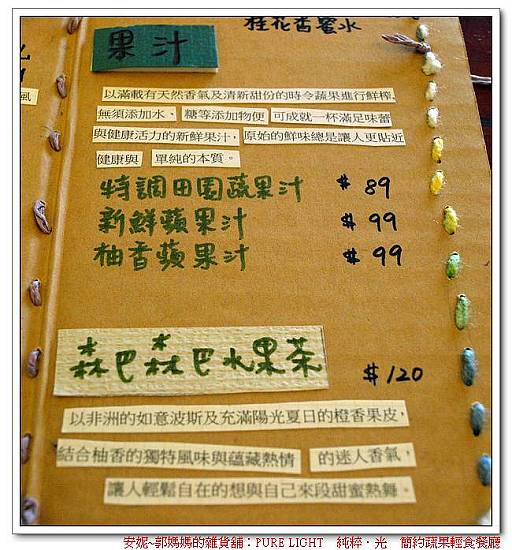 桂花香蜜水
果汁
風
以滿載有天然香氣及清新甜份的時令蔬果進行鮮榨
無須添加水、 糖等添加物便 可成就一杯滿足味蕾
與健康活力的新鮮果汁, 原始的鮮味總是讓人更貼近
健康與 單純的本質。
特調田園蔬果汁 $ 89
新鮮蘋果汁 $ 99
柚香蘋果汁 $ 99
森巴森巴水果茶 $ 120
以非洲的如意波斯及充滿陽光夏日的橙香果皮,
結合柚香的獨特風味與蘊藏熱情 的迷人香氣,
讓人輕鬆自在的想與自己來段甜蜜熱舞。
安妮~郭媽媽的雜貨舖:PURE LIGHT 純粹·光 簡約蔬果輕食餐廳